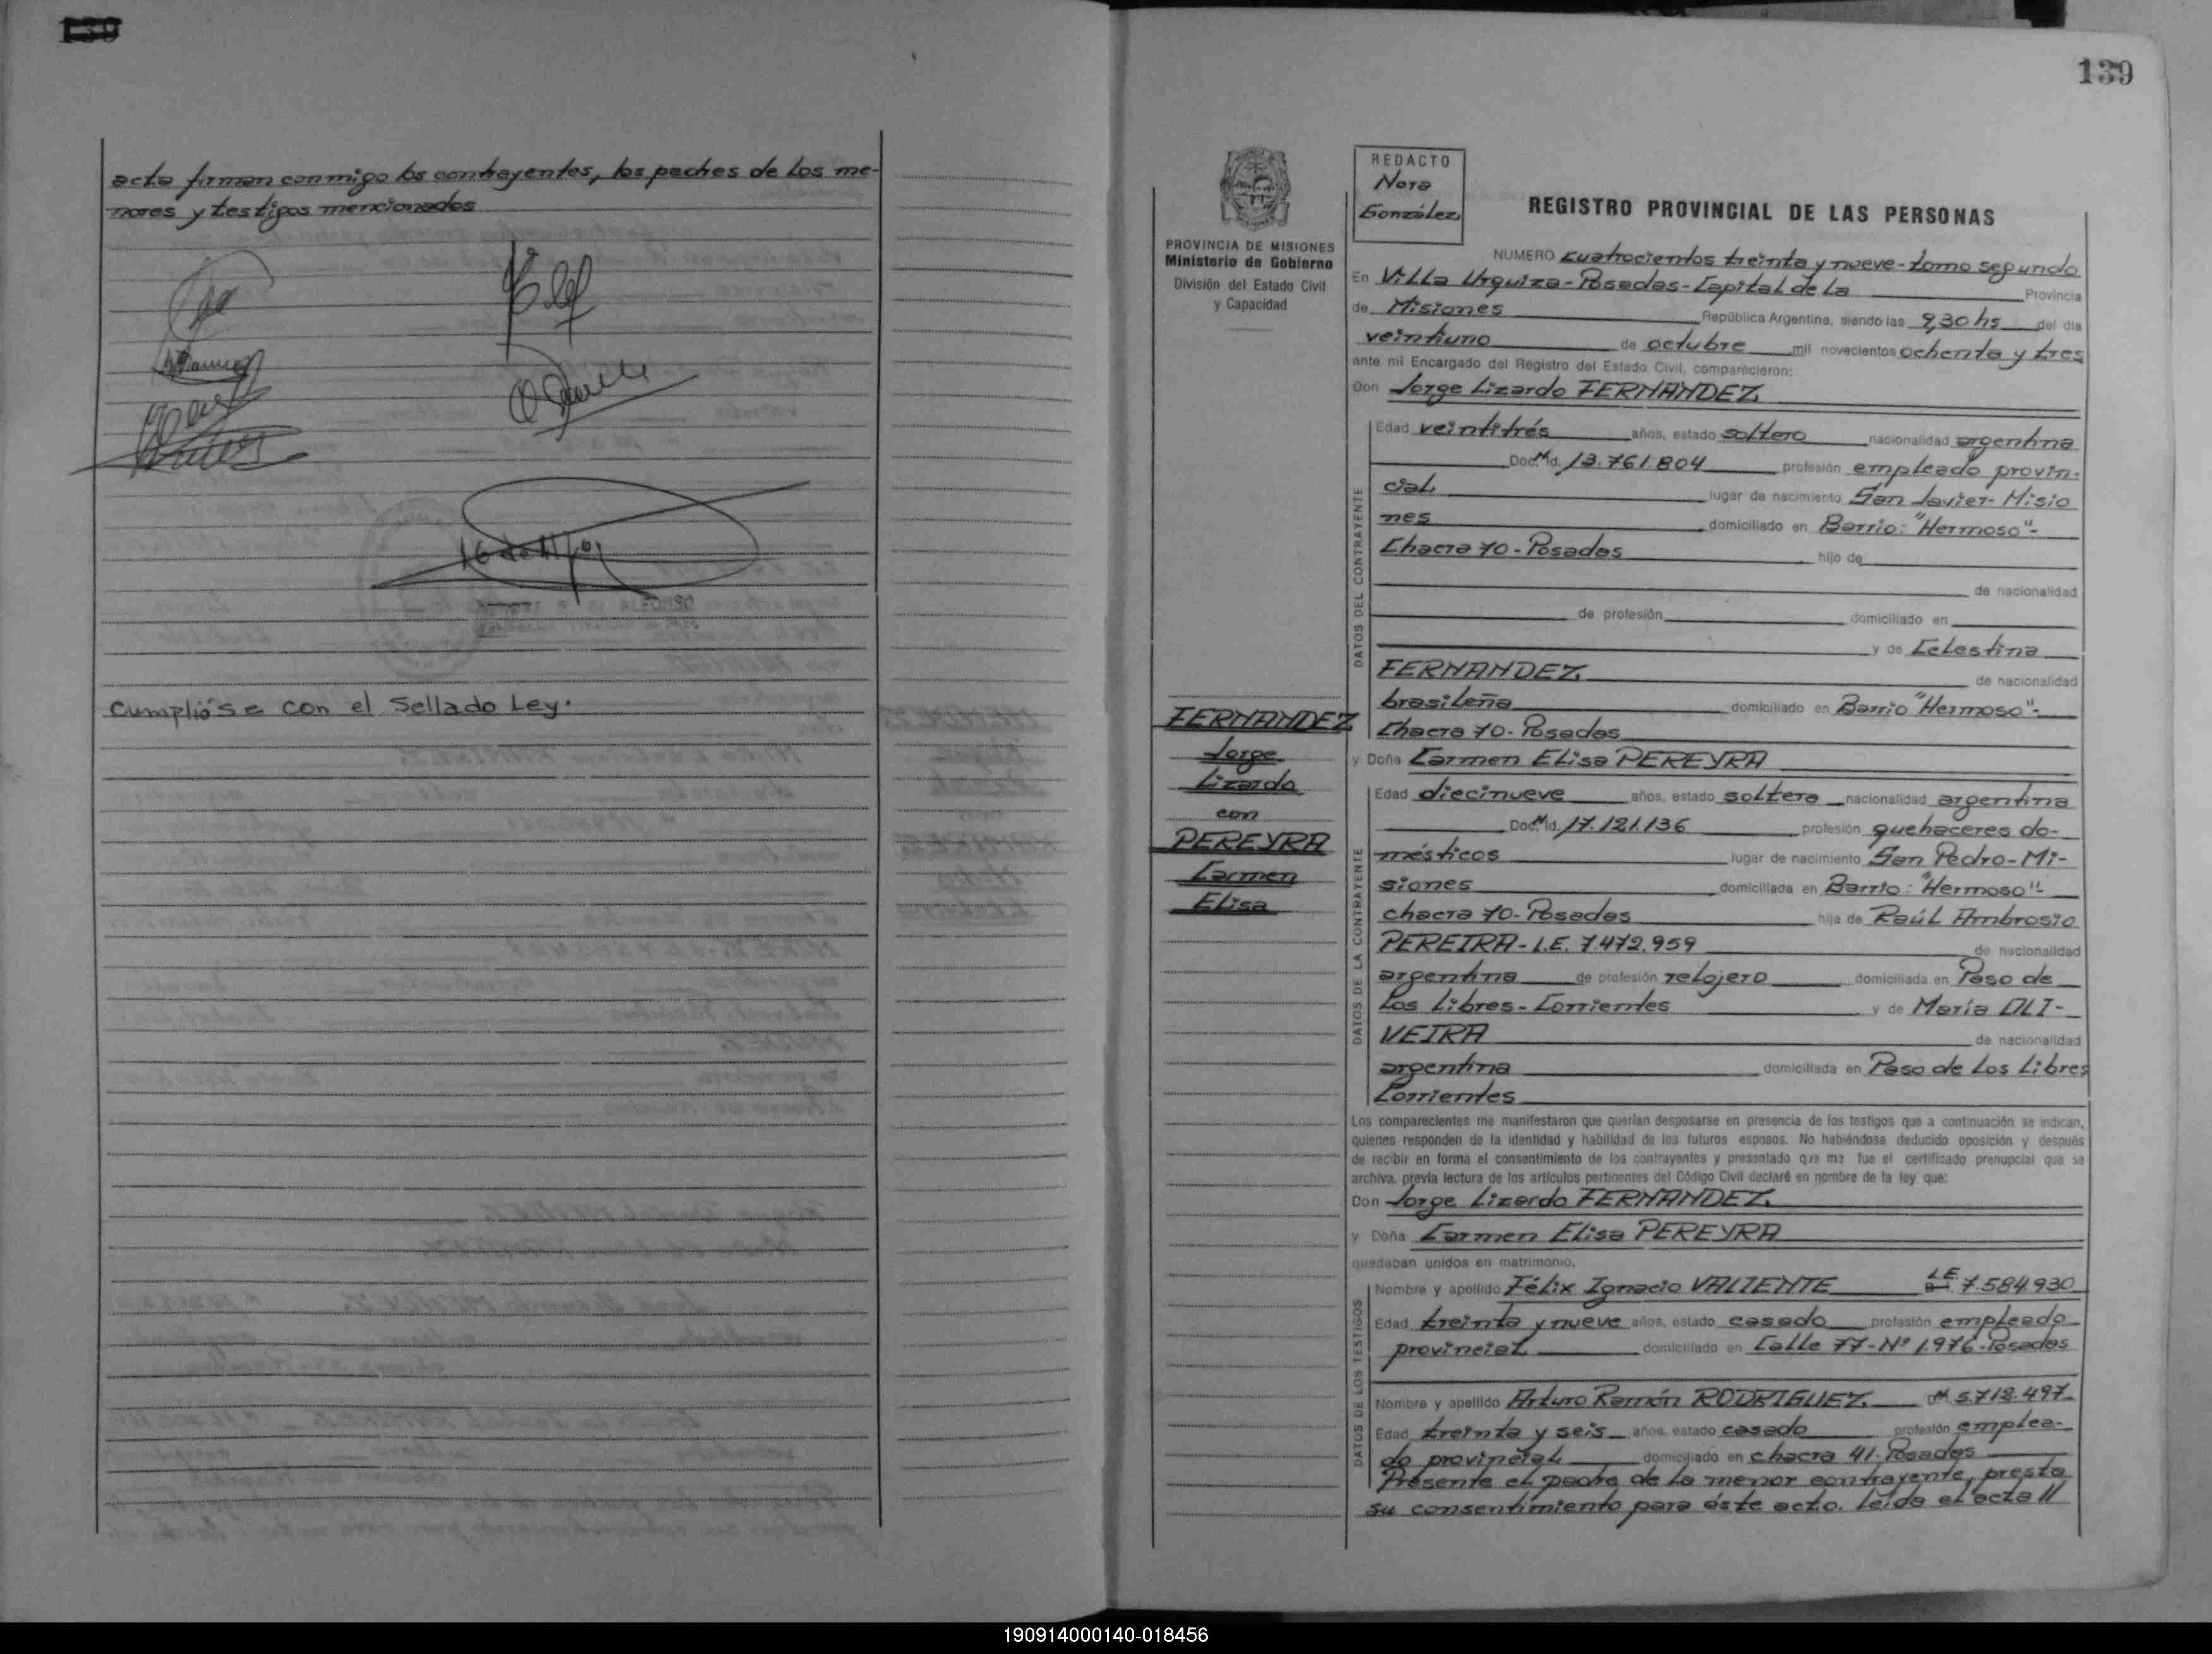 139
acta firman conmigo los contrayentes, los padres de los me-
nores y testigos mencionados
Cumplióse con el Sellado Ley.
139
REDACTO
Nora
González
PROVINCIA DE MISIONES
Ministerio de Gobierno
División del Estado Civil
y Capacidad
REGISTRO PROVINCIAL DE LAS PERSONAS
NUMERO cuatrocientos treinta y nueve-tomo segundo
En Villa Urquiza-Posadas-Capital de la Provincia
de Misiones República Argentina, siendo las 9,30 hs del día
veintiuno de octubre mil novecientos ochenta y tres
ante mí Encargado del Registro del Estado Civil, comparecieron:
Don Jorge Lizardo FERNANDEZ
DATOS DEL CONTRAYENTE
Edad veintitrés años, estado soltero nacionalidad argentina
Doc. Nd. 13.761.804 profesión empleado provin-
cial lugar de nacimiento San Javier-Misio
nes domiciliado en Barrio: "Hermoso"-
Chacra 70-Posadas hijo de
de nacionalidad
de profesión domiciliado en
y de Celestina
FERNANDEZ de nacionalidad
brasileña domiciliado en Barrio "Hermoso"-
Chacra 70-Posadas
FERNANDEZ
Jorge
Lizardo
con
PEREYRA
Carmen
Elisa
y Doña Carmen Elisa PEREYRA
DATOS DE LA CONTRAYENTE
Edad diecinueve años, estado soltera nacionalidad argentina
Doc. Nd. 17.121.136 profesión quehaceres do-
mésticos lugar de nacimiento San Pedro-Mi-
siones domiciliada en Barrio: "Hermoso"-
chacra 70-Posadas hija de Raúl Ambrosio
PEREIRA-L.E. 7.472.959 de nacionalidad
argentina de profesión relojero domiciliada en Paso de
los Libres-Corrientes y de María OLI-
VEIRA de nacionalidad
argentina domiciliada en Paso de Los Libres
Corrientes
Los comparecientes me manifestaron que querían desposarse en presencia de los testigos que a continuación se indican,
quienes responden de la identidad y habilidad de los futuros esposos. No habiéndose deducido oposición y después
de recibir en forma el consentimiento de los contrayentes y presentado que me fue el certificado prenupcial que se
archiva, previa lectura de los artículos pertinentes del Código Civil declaré en nombre de la ley que:
Don Jorge Lizardo FERNANDEZ
y Doña Carmen Elisa PEREYRA
quedaban unidos en matrimonio.
DATOS DE LOS TESTIGOS
Nombre y apellido Félix Ignacio VALIENTE L.E. 7.584.930
Edad treinta y nueve años, estado casado profesión empleado
provincial domiciliado en Calle 77-Nº 1.976-Posadas
Nombre y apellido Arturo Ramón RODRIGUEZ 5.712.497
Edad treinta y seis años, estado casado profesión emplea-
do provincial domiciliado en chacra 41-Posadas
Presente el padre de la menor contrayente, presta
su consentimiento para éste acto. Leída el acta //
190914000140-018456